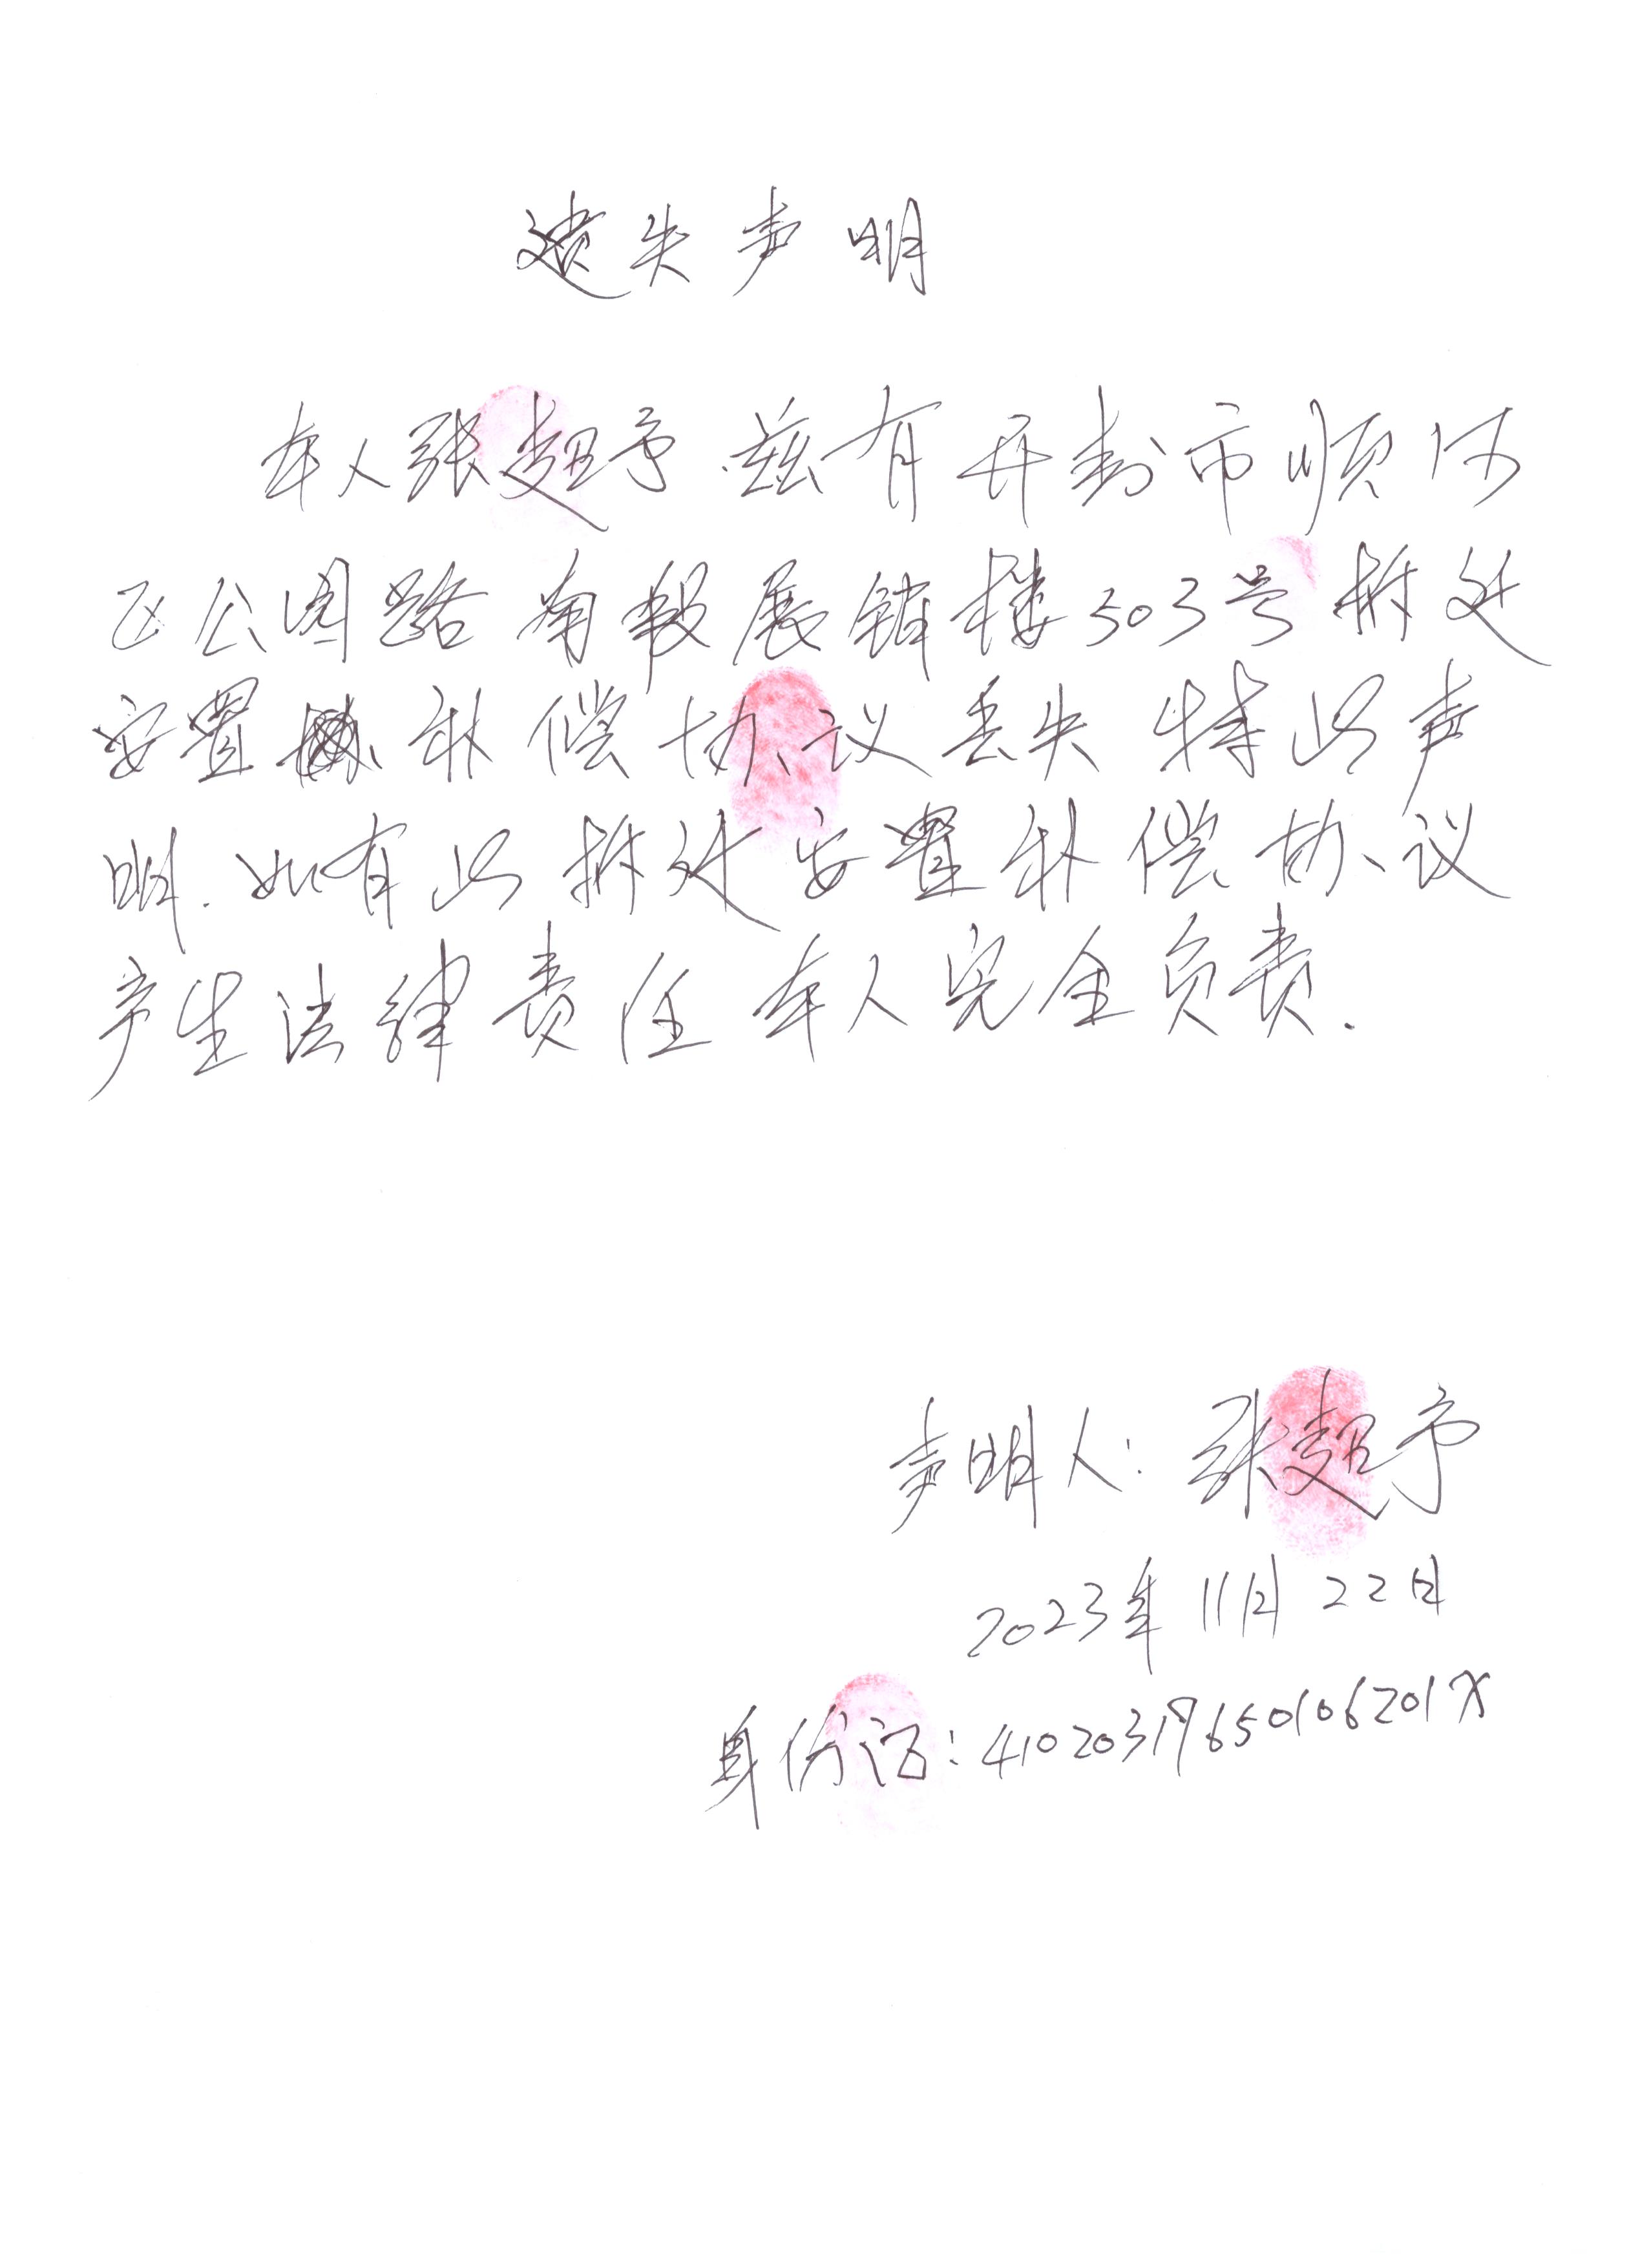 遗失声明
本人张超予.兹有开封市顺河
区公园路南段展销楼503号拆迁
安置补偿协议丢失特此声
明.如有此拆迁安置补偿协议
产生法律责任本人完全负责.
声明人:张超予
2023年11月22日
身份证:41020319650106201X